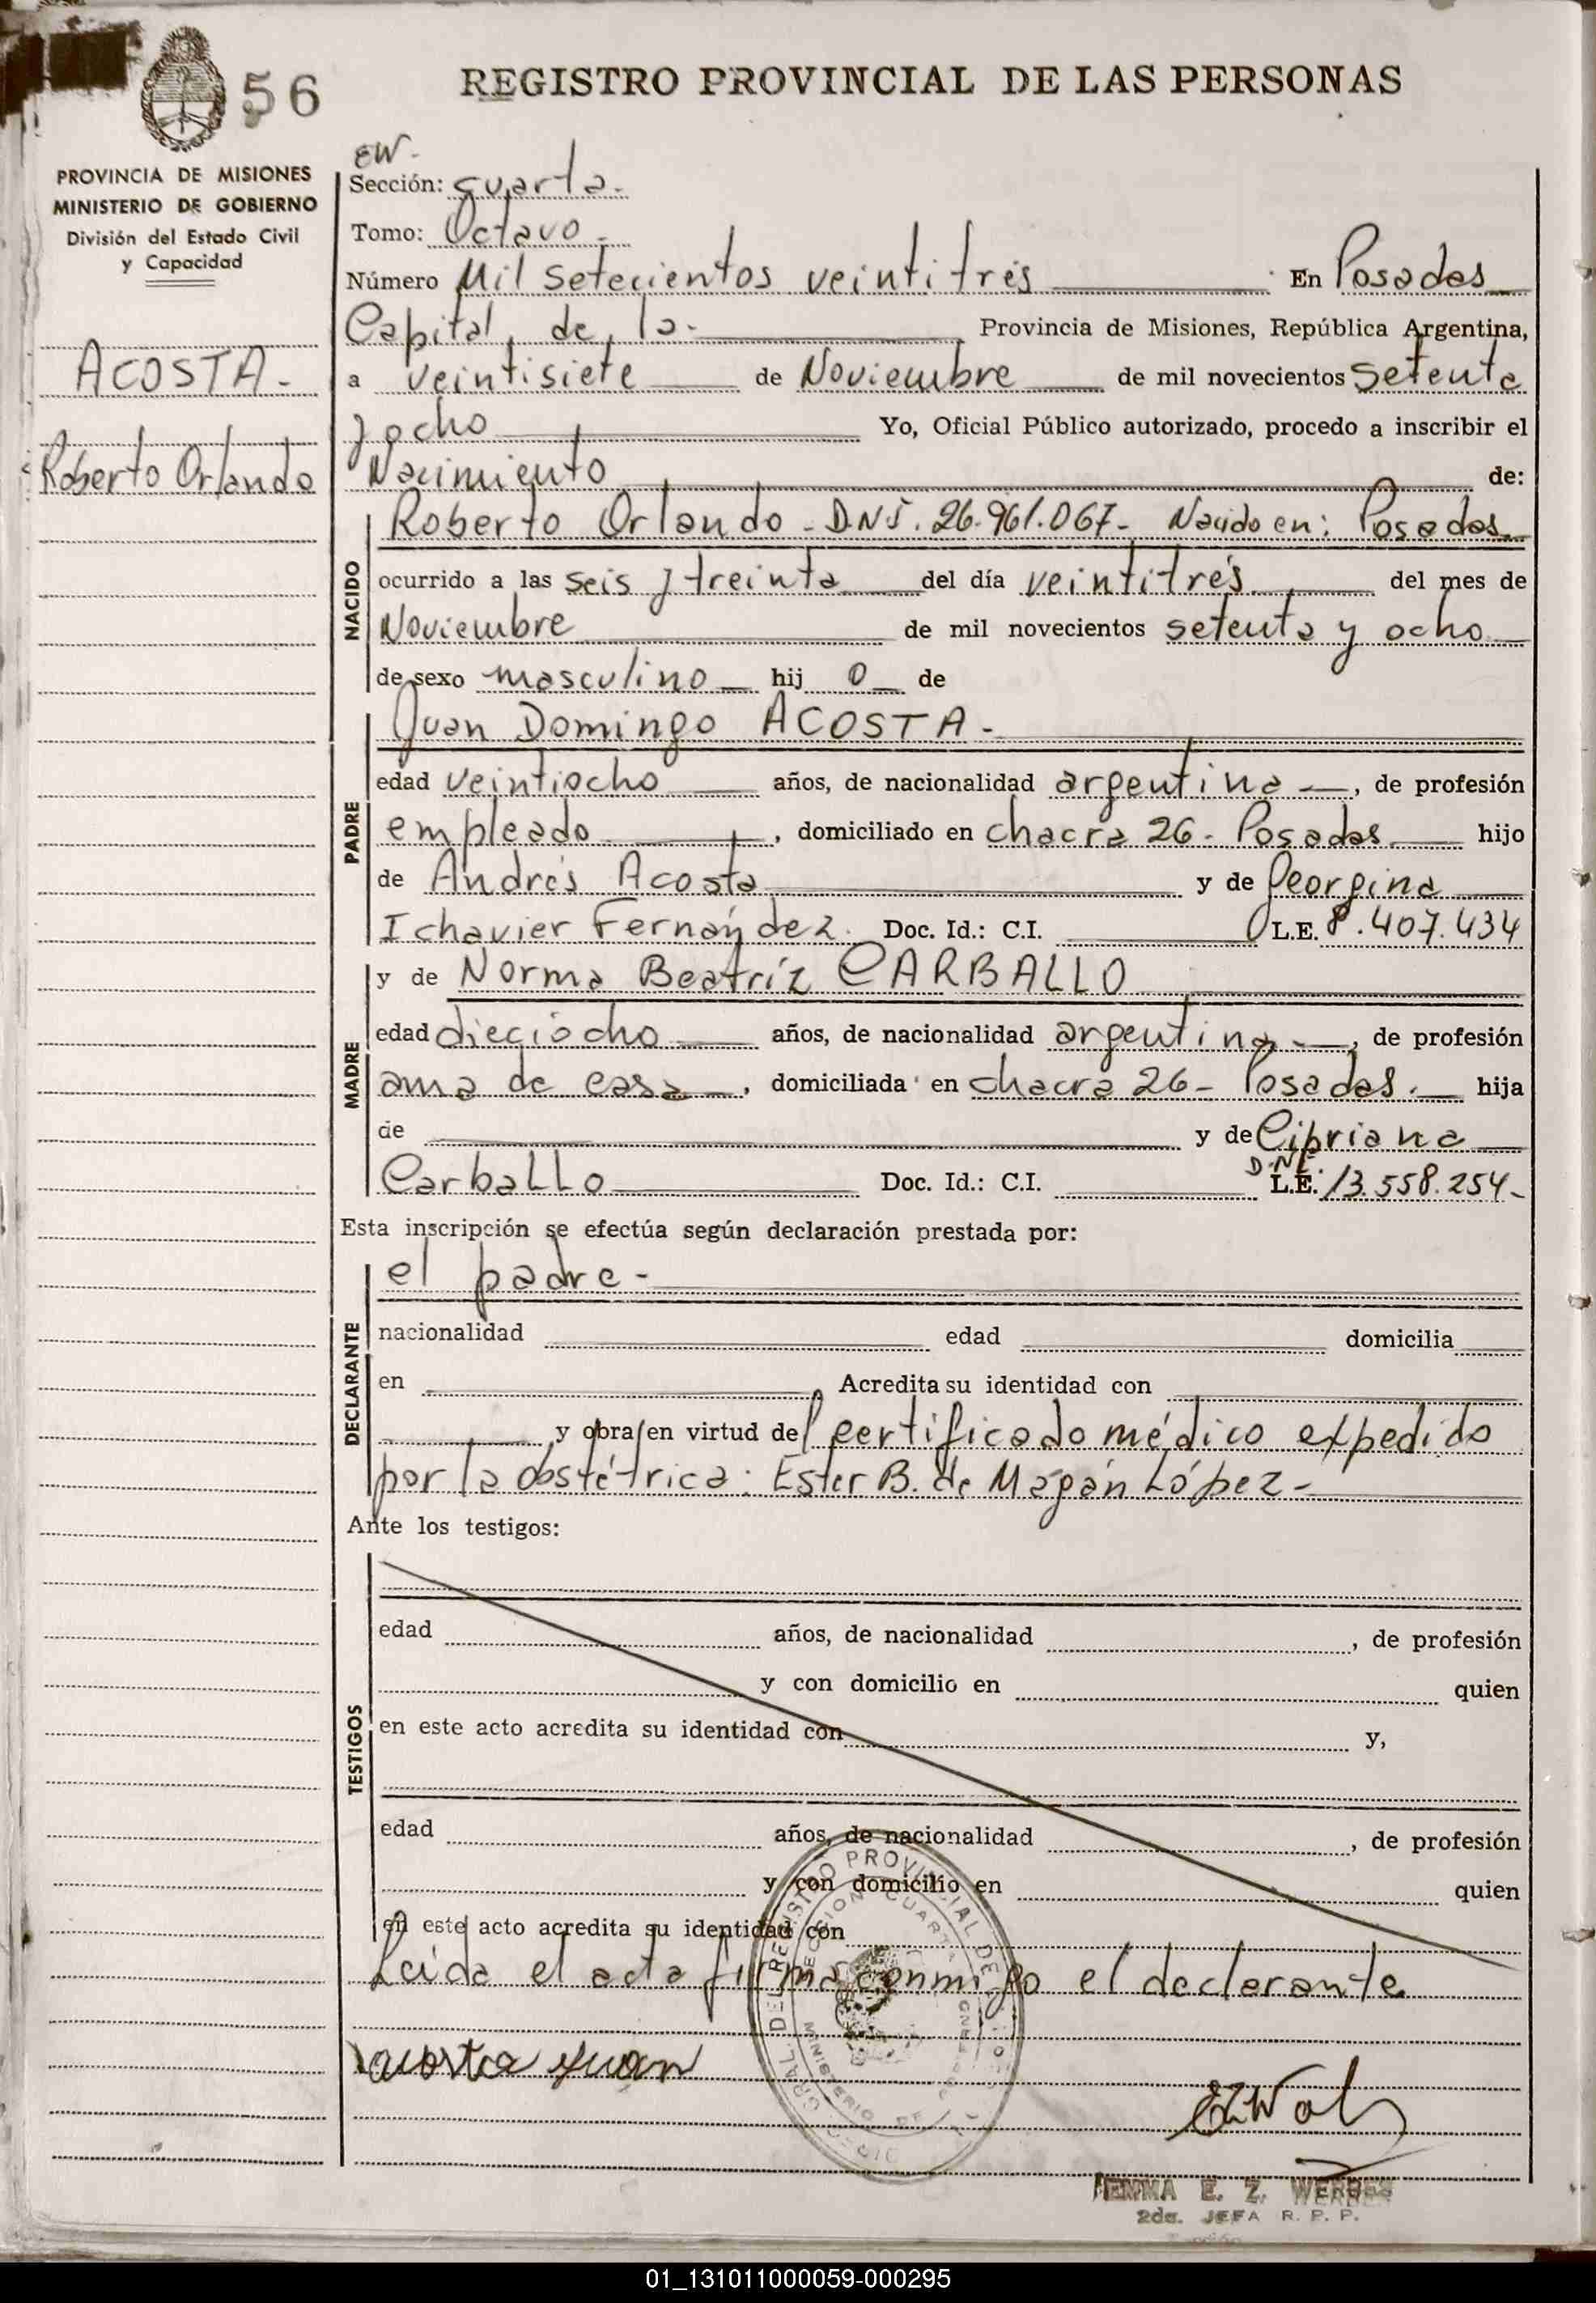 56
REGISTRO PROVINCIAL DE LAS PERSONAS
PROVINCIA DE MISIONES
MINISTERIO DE GOBIERNO
División del Estado Civil
y Capacidad
ACOSTA-
Roberto Orlando
EW-
Sección: cuarta.
Tomo: Octavo -
Número Mil setecientos veintitrés En Posadas
Capital de la- Provincia de Misiones, República Argentina,
a veintisiete de Noviembre de mil novecientos setenta
y ocho Yo, Oficial Público autorizado, procedo a inscribir el
Nacimiento de:
NACIDO
Roberto Orlando - D.N.I. 26.961.067- Nacido en: Posadas
ocurrido a las seis y treinta del día veintitrés del mes de
Noviembre de mil novecientos setenta y ocho
de sexo masculino hij o de
PADRE
Juan Domingo ACOSTA-
edad veintiocho años, de nacionalidad argentina, de profesión
empleado, domiciliado en chacra 26- Posadas hijo
de Andrés Acosta y de Georgina
Ichavier Fernández. Doc. Id.: C.I. L.E. 8.407.434
MADRE
y de Norma Beatríz CARBALLO
edad dieciocho años, de nacionalidad argentina, de profesión
ama de casa, domiciliada en chacra 26- Posadas. hija
de y de Cipriana
Carballo Doc. Id.: C.I. D.N.I. L.E. 13.558.254-
Esta inscripción se efectúa según declaración prestada por:
DECLARANTE
el padre-
nacionalidad edad domicilia
en Acredita su identidad con
y obra en virtud del certificado médico expedido
por la obstétrica: Ester B. de Magán López-
Ante los testigos:
TESTIGOS
edad años, de nacionalidad , de profesión
y con domicilio en quien
en este acto acredita su identidad con y,
edad años, de nacionalidad , de profesión
y con domicilio en quien
en este acto acredita su identidad con
Leida el acta firma conmigo el declarante
acosta Juan
EMMA E. Z. WERBES
2da. JEFA R. P. P.
01_131011000059-000295